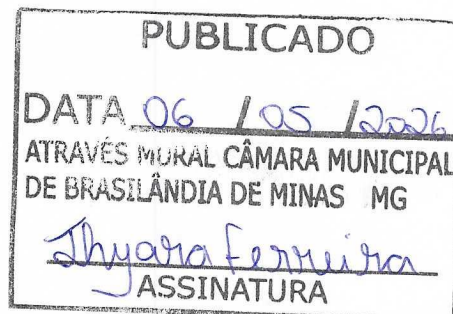 PUBLICADO
DATA 06 / 05 / 2026
ATRAVÉS MURAL CÂMARA MUNICIPAL
DE BRASILÂNDIA DE MINAS MG
Thyara Ferreira
ASSINATURA